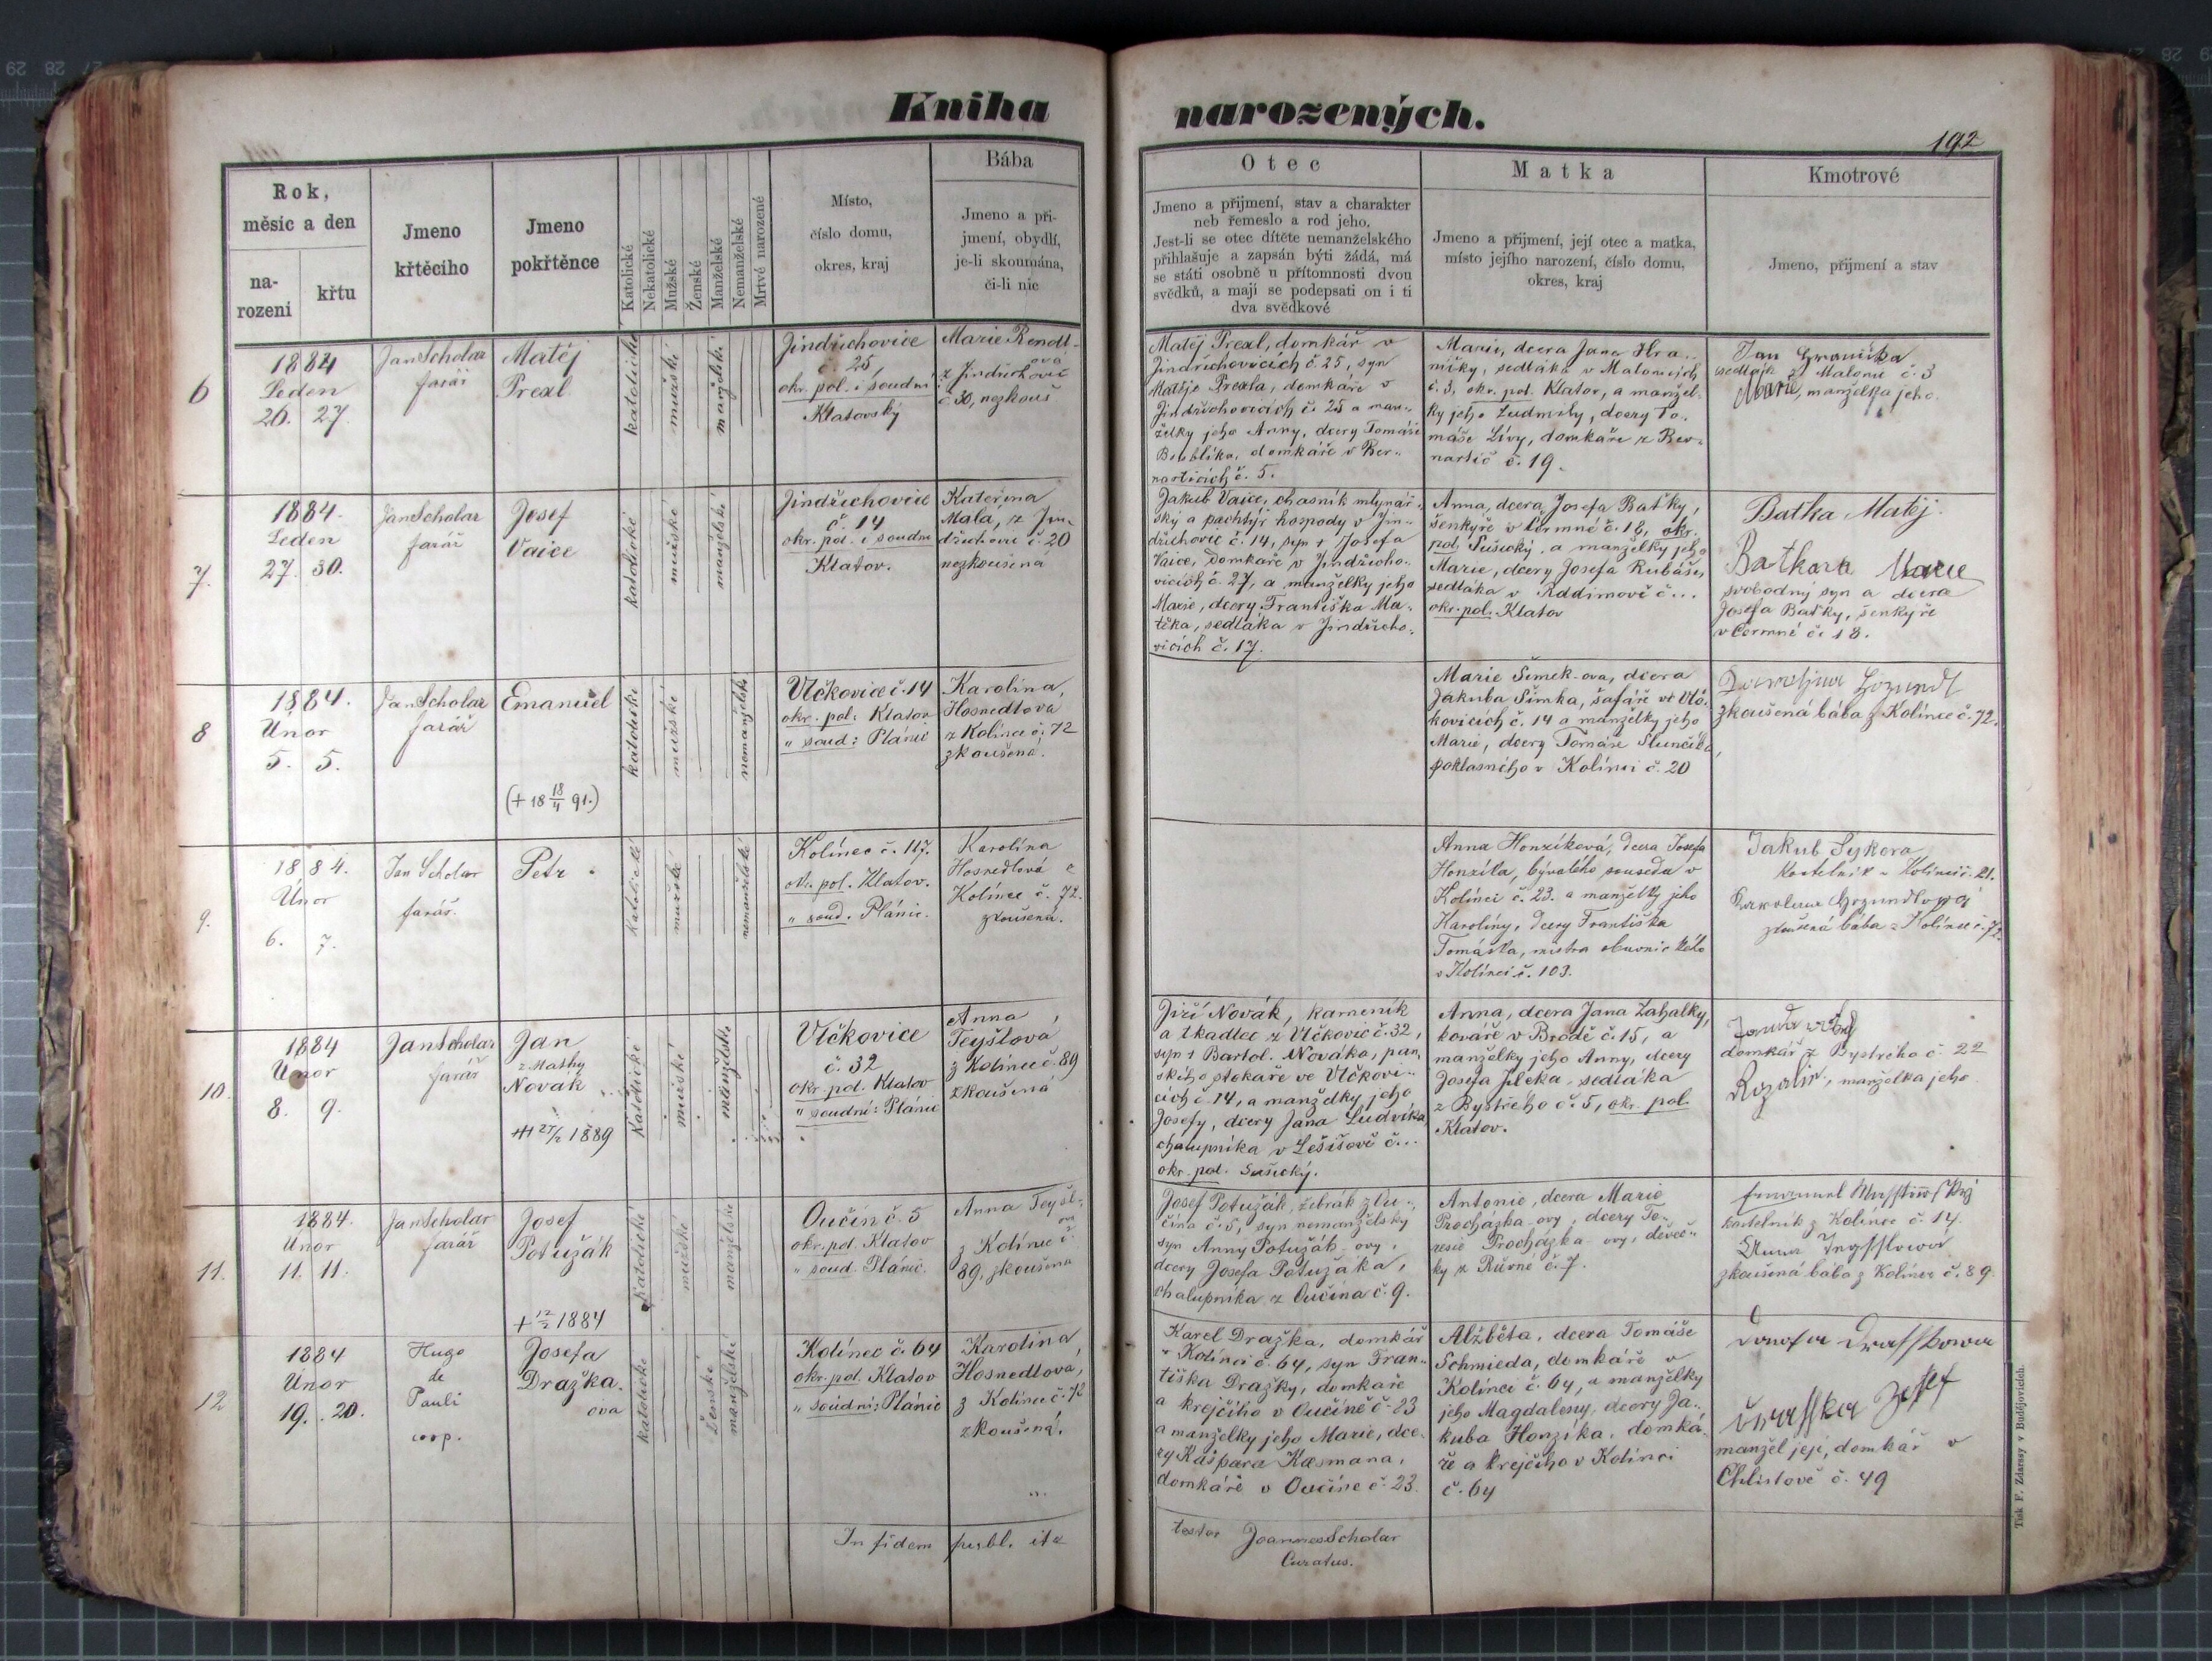 Kniha narozených.
192
Rok,
měsíc a den
na-
rození
křtu
Jmeno
křtěcího
Jmeno
pokřtěnce
Katolické
Nekatolické
Mužské
Ženské
Manželské
Nemanželské
Mrtvé narozené
Místo,
číslo domu,
okres, kraj
Bába
Jmeno a pří-
jmení, obydlí,
je-li skoumána,
či-li nic
Otec
Jmeno a příjmení, stav a charakter
neb řemeslo a rod jeho.
Jest-li se otec dítěte nemanželského
přihlašuje a zapsán býti žádá, má
se státi osobně u přítomnosti dvou
svědků, a mají se podepsati on i ti
dva svědkové
Matka
Jmeno a příjmení, její otec a matka,
místo jejího narození, číslo domu,
okres, kraj
Kmotrové
Jmeno, příjmení a stav
6
1884
Leden
26. 27.
Jan Scholar
farář
Matěj
Prexl
katolické
mužské
manželské
Jindřichovice
č. 25
okr. pol. i soudní
Klatovský
Marie Rendl-
ova
z Jindřichovic
č. 30, nezkouš
Matěj Prexl, domkář v
Jindřichovicích č. 25, syn
Matěje Prexla, domkáře v
Jindřichovicích č. 25 a man-
želky jeho Anny, dcery Tomáše
Bublíka, domkáře v Ber-
narticích č. 5.
Marie, dcera Jana Hra-
ničky, sedláka v Malonicích
č. 3, okr. pol. Klatov, a manžel-
ky jeho Ludmily, dcery To-
máše Lívy, domkáře z Ber-
nartic č. 19.
Jan Hranička
sedlák z Malonic č. 3
Marie, manželka jeho.
7.
1884.
Leden
27. 30.
Jan Scholar
farář
Josef
Vaice
katolické
mužské
manželské
Jindřichovice
č. 14
okr. pol. i soudní
Klatov.
Kateřina
Malá, z Jin-
dřichovic č. 20
nezkoušená
Jakub Vaice, chasník mlynář-
ský a pachtýř hospody v Jin-
dřichovic č. 14, syn + Josefa
Vaice, domkáře v Jindřicho-
vicích č. 27, a manželky jeho
Marie, dcery Františka Ma-
těka, sedláka v Jindřicho-
vicích č. 17.
Anna, dcera Josefa Baťky,
šenkýře v Čermné č. 18, okr.
pol. Sušický, a manželky jeho
Marie, dcery Josefa Rubáše,
sedláka v č...
okr. pol. Klatov
Baťka Matěj.
Batkova Marie
svobodný syn a dcera
Josefa Baťky, šenkýře
v Čermné č. 18.
8
1884.
Únor
5. 5.
Jan Scholar
farář
Emanuel
(+ 18 18/4 91.)
katolické
mužské
nemanželské
Vlčkovice č. 14
okr. pol: Klatov
" soud: Plánic
Karolína,
Hosnedlova
z Kolince č. 72
zkoušená.
Marie Šimek-ova, dcera
Jakuba Šimka, šafáře ve Vlč-
kovicích č. 14 a manželky jeho
Marie, dcery Tomáše Slunčíka,
poklasného v Kolínci č. 20
zkoušená bába z Kolínce č. 72.
9.
1884.
Únor
6. 7.
Jan Scholar
farář.
Petr
katolické
mužské
nemanželské
Kolínec č. 117.
ok. pol. Klatov.
" soud. Plánic.
Karolína
Hosnedlová
Kolínec č. 72.
zkoušená.
Anna Honzíková, dcera Josefa
Honzíka, bývalého souseda v
Kolínci č. 23. a manželky jeho
Karolíny, dcery Františka
Tomáška, mistra obuvnického
v Kolínci č. 103.
Jakub Sykora
kostelník v Kolínci č. 21.
zkušená bába z Kolínce č. 72.
10.
1884
Únor
8. 9.
Jan Scholar
farář
Jan
z Mathy
Novák
27/2 1889
katolické
mužské
manželské
Vlčkovice
č. 32
okr. pol. Klatov
" soudní: Plánic
Anna
Teyslova,
z Kolince č. 89
zkoušená
Jiří Novák, kameník
a tkadlec z Vlčkovic č. 32,
syn + Bartol. Nováka, pan-
ského stokaře ve Vlčkovi-
cích č. 14, a manželky jeho
Josefy, dcery Jana Ludvíka,
chalupníka v Lešišově č...
okr. pol. Sušický.
Anna, dcera Jana Zahalky,
kováře v Brodě č. 15, a
manželky jeho Anny, dcery
Josefa Jílka, sedláka
z Bystřeho č. 5, okr. pol.
Klatov.
domkář z Bystrého č. 22
Rozalie, manželka jeho
11.
1884.
Únor
11. 11.
Jan Scholar
farář
Josef
Potužák
+ 12/2 1884
katolické
mužské
manželské
Oučín č. 5
okr. pol. Klatov
" soud. Plánic.
Anna Teysl-
ova
z Kolince č.
89, zkoušená
Josef Potužák, žebrák z Ou-
čína č. 5, syn nemanželský
syn Anny Potužák-ovy,
dcery Josefa Potužáka,
chalupníka z Oučína č. 9.
Antonie, dcera Marie
Procházka-ovy, dcery Te-
resie Procházka-ovy, děveč-
ky z Růvné č. 7.
kostelník z Kolínce č. 14.
zkoušená bába z Kolínce č. 89.
12
1884
Únor
19. 20.
Hugo
de
Pauli
coop.
Josefa
Dražka.
ova
katolické
ženské
manželské
Kolínec č. 64
okr. pol. Klatov
" soudní: Plánic
Karolína,
Hosnedlova,
z Kolínce č. 72
zkoušená.
Karel Dražka, domkář
v Kolínci č. 64, syn Fran-
tiška Dražky, domkáře
a krejčího v Oučíně č. 23
a manželky jeho Marie, dce-
ry Kašpara Kasmana,
domkáře v Oučíne č. 23.
Alžběta, dcera Tomáše
Schmieda, domkáře v
Kolínci č. 64, a manželky
jeho Magdaleny, dcery Ja-
kuba Honzíka, domká-
ře a krejčího v Kolínci
č. 64
Josef
manžel její, domkář v
Chlistově č. 49
In fidem publ. ita
testor Joannes Scholar
Curatus.
Tisk F. Zdarssy v Budějovicích.